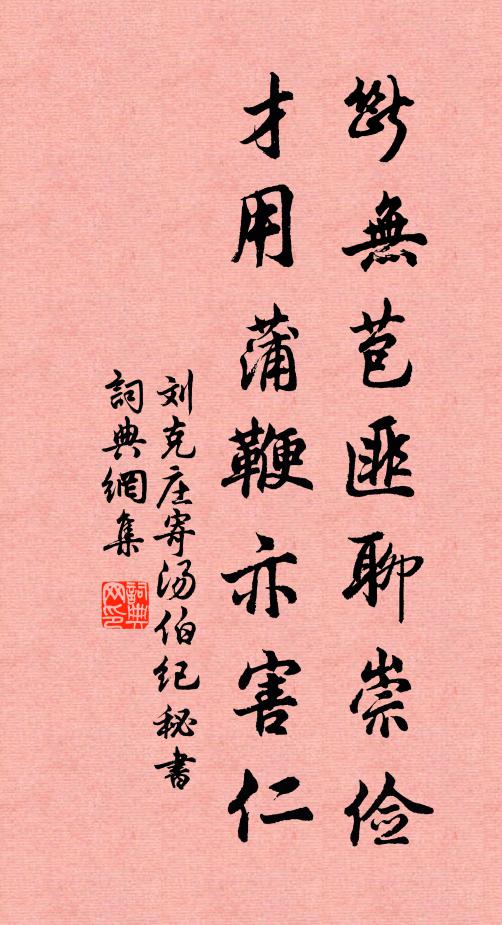 断無苞匪聊崇俭
才用蒲鞭亦害仁
刘克庄寄汤伯纪秘書
詞典網集
詞典網印